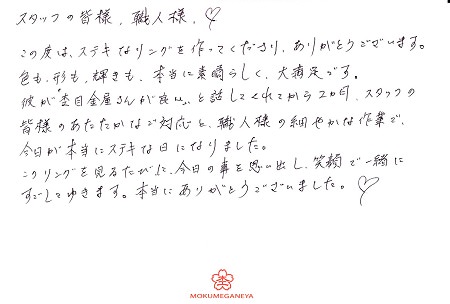 スタッフの皆様、職人様、♡
この度は、ステキなリングを作ってくださり、ありがとうございます。
色も、形も、輝きも、本当に素晴らしく、大満足です。
彼が"杢目金屋さんが良い。"と話してくれてから2カ月、スタッフの
皆様のあたたかなご対応と、職人様の細やかな作業で、
今日が本当にステキな日になりました。
このリングを見るたびに、今日の事を思い出し、笑顔で一緒に
すごしてゆきます。本当にありがとうございました。♡
MOKUMEGANEYA